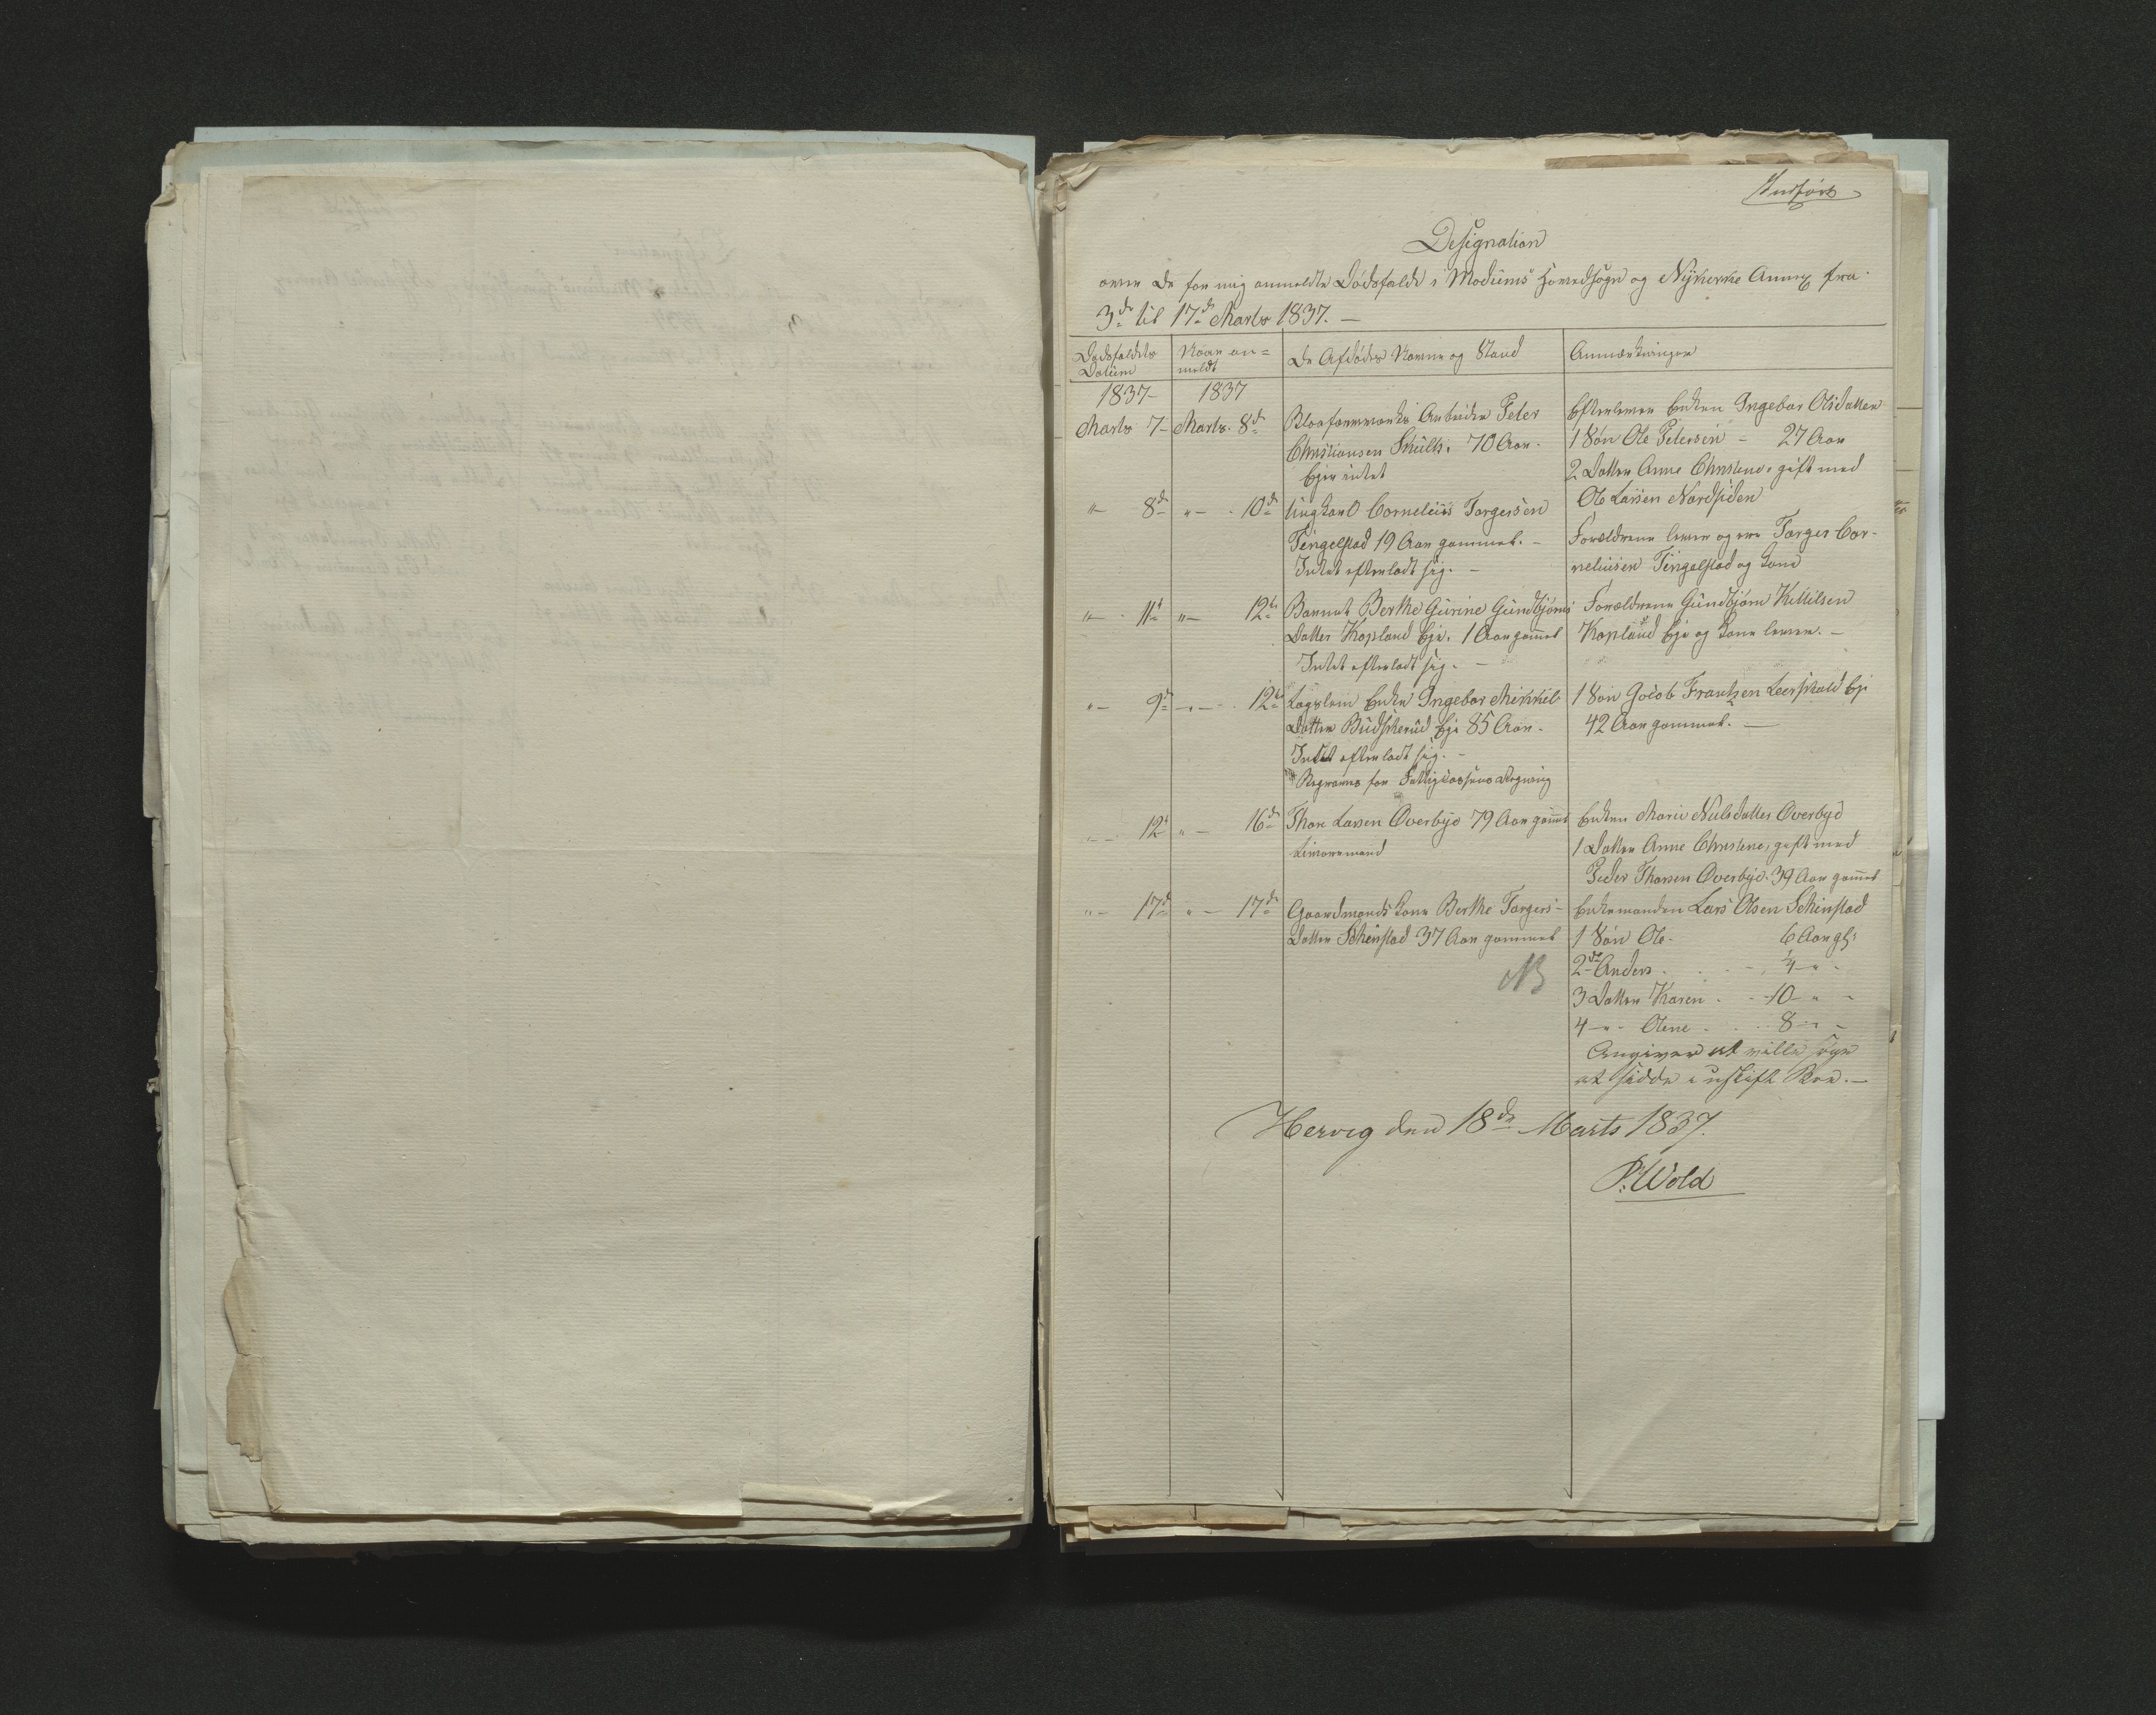 Indført
Designation
over de for mig anmeldte Dödsfalde i Modums Hovedsogn og Nykirke Annex fra
3de til 17de Marts 1837. —
Dödsfaldets Datum
Naar an= meldt
De Afdödes Navne og Stand
Anmærkninger
1837 1837
Marts 7 Marts 8de Blaafarveværks Arbeider Peter
Christiansen Skults. 70 Aar.
Ejer intet
Efterlever Enken Ingebor Olsdatter
1 Sön Ole Petersen — 27 Aar
2 Datter Anne Christine, gift med
Ole Larsen Nordsiden
"— 8de "— 10de Ungkarl Cornelius Torgersen
Tingelstad 19 Aar gammel. —
Intet efterladt sig. —
Forældrene lever og ere Torger Cor-
neliusen Tingelstad og Kone
"— 11te "— 12te Barnet Berthe Gurine Gundbjörns
Datter Kopland Eje. 1 Aar gammel
Intet efterladt sig. —
Forældrene Gundbjörn Kittilsen
Kopland Eje og Kone lever. —
"— 9de "— 12te Lægslem Enke Ingebor Mikkels
Datter Budskerud Eje 85 Aar.
Intet efterladt sig. —
Begraves for Fattigkassens Regning
1 Sön Jocob Frantzen Leerskald Eje
42 Aar gammel. —
"— 12te "— 16de Thor Larsen Overbye 79 Aar gammel
Enken Marie Nielsdatter Overbye
1 Datter Anne Christine, gift med
Peder Thorsen Overbye. 39 Aar gammel
"— 17de "— 17de Gaardmands Kone Berthe Torgers-
Datter Schinstad 37 Aar gammel
NB
Enkemanden Lars Olsen Schinstad
1 Sön Ole. 6 Aar gl:
2de Anders. 1/4 "
3 Datter Karen 10 "
4 —"— Olene 8 "
Angiver at ville søge
at sidde i uskift Boe. —
Hervig den 18de Marts 1837.
P. Wold